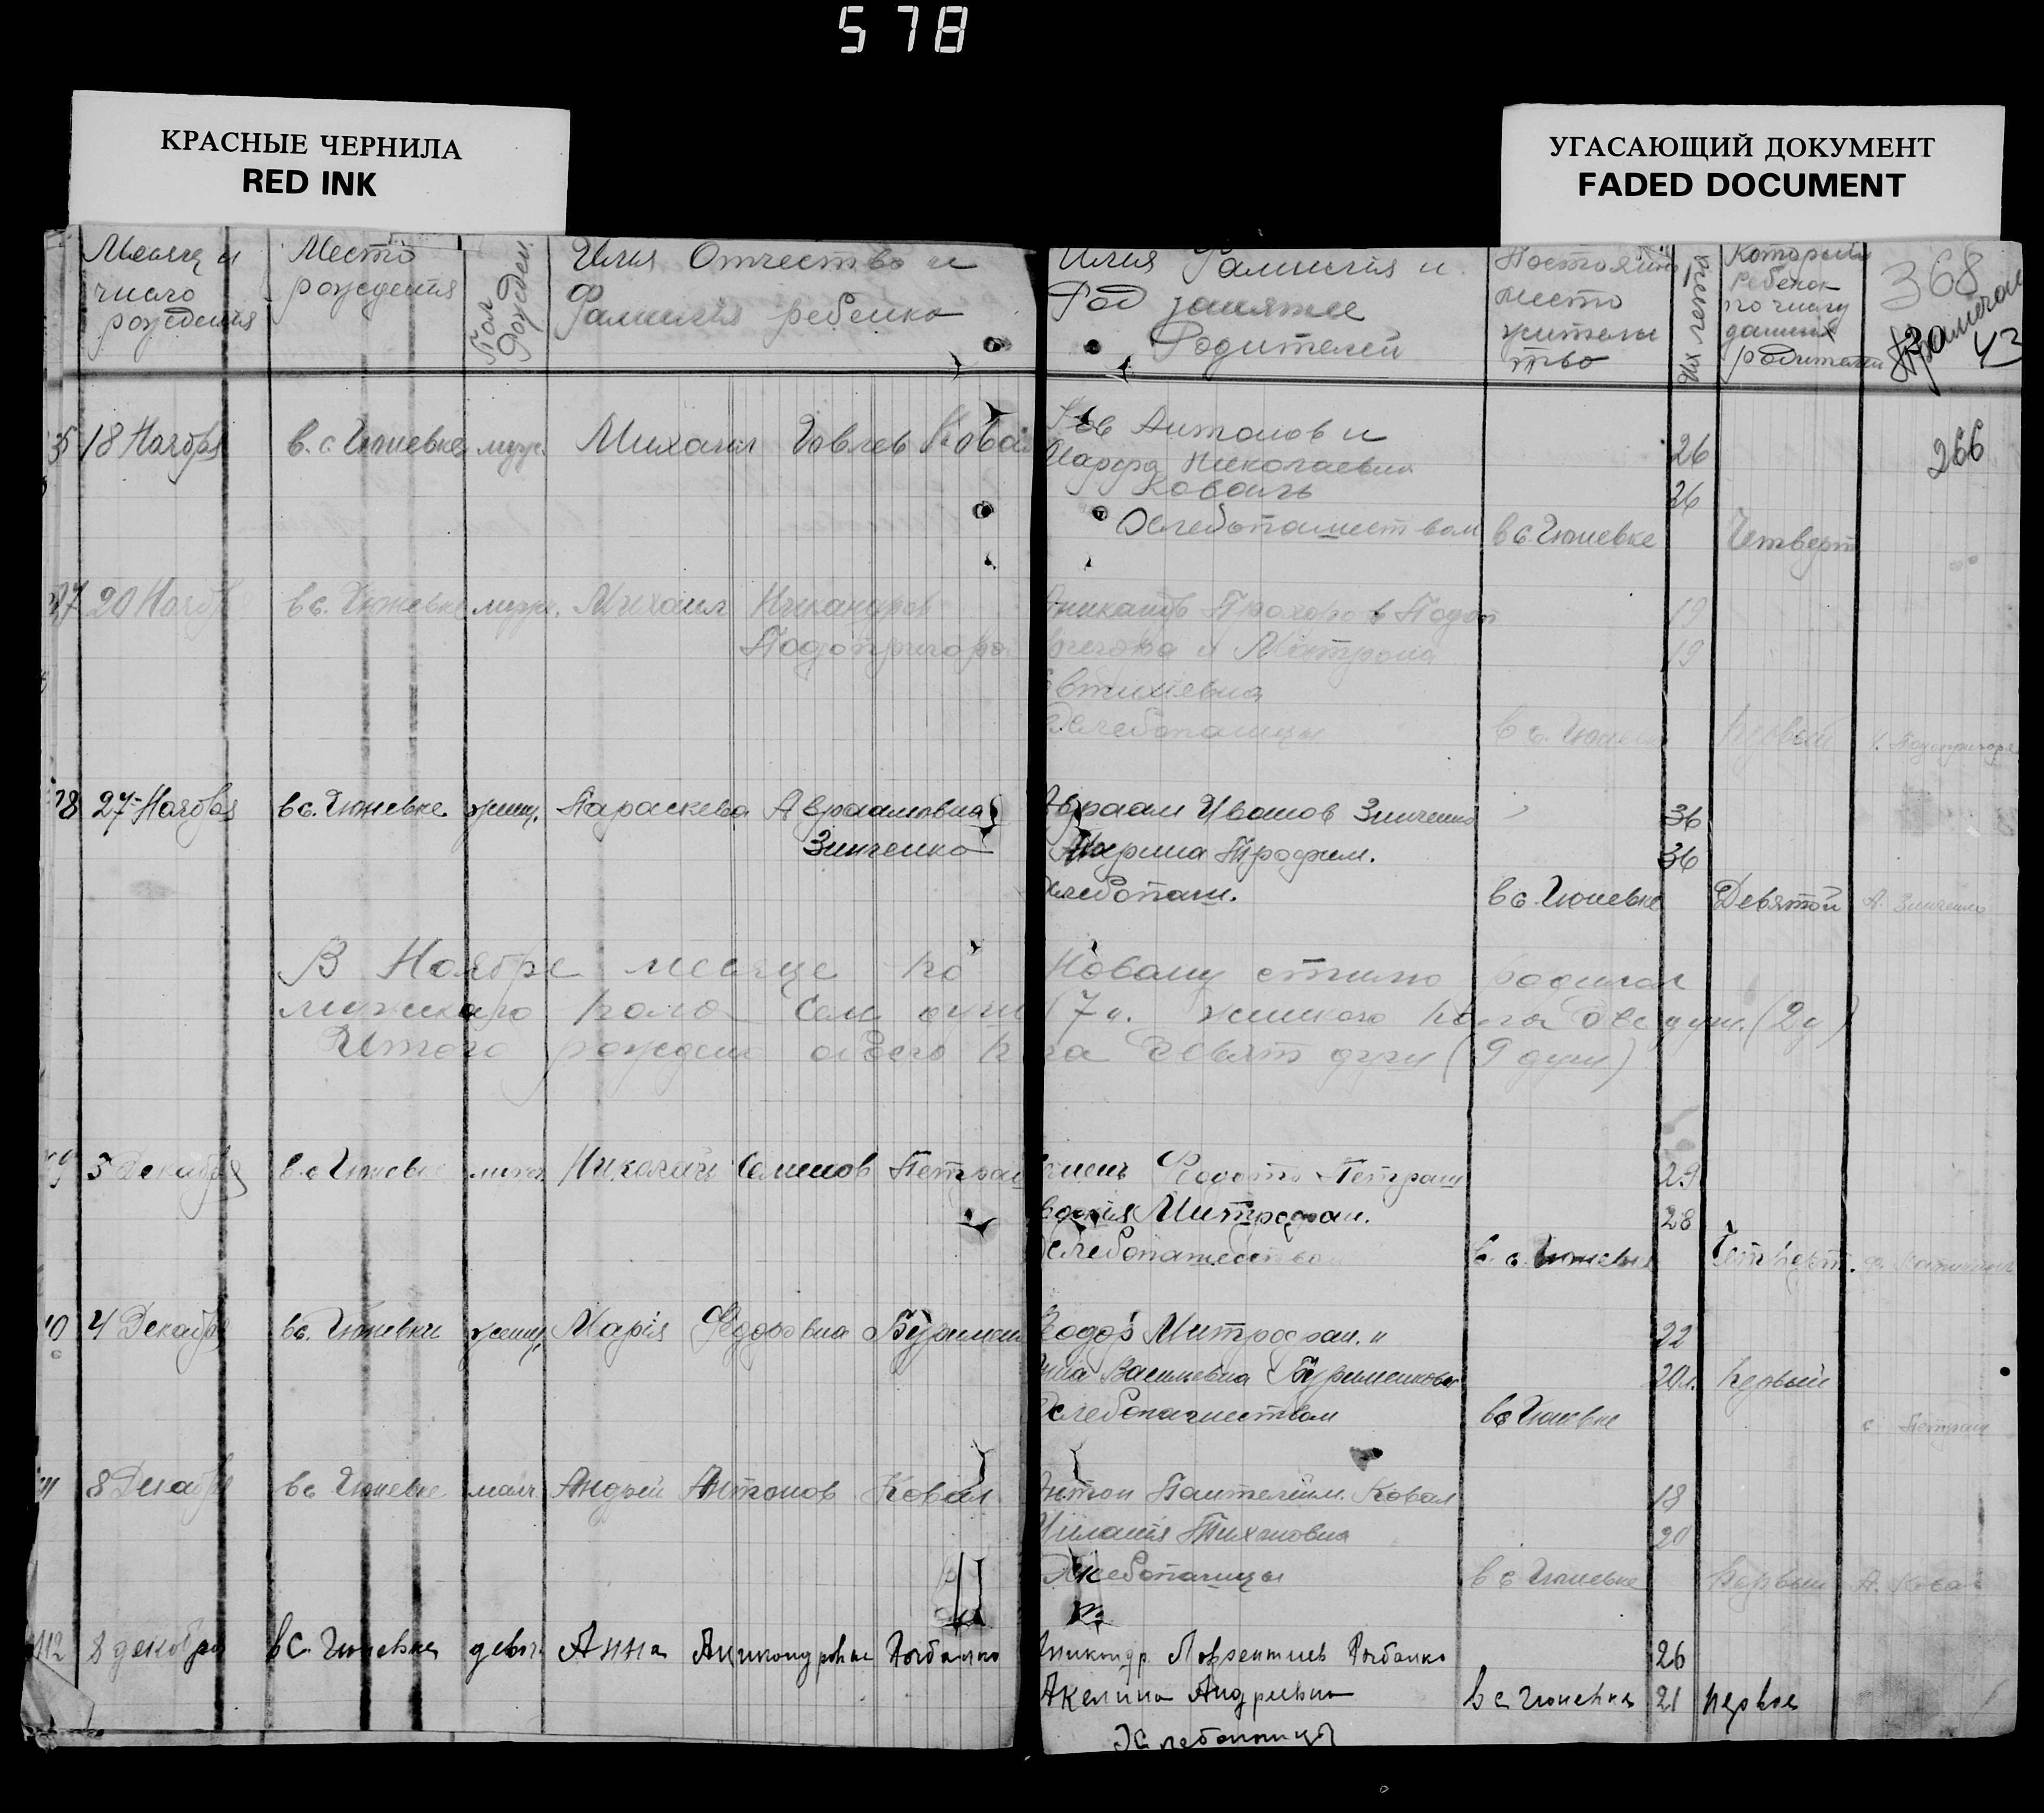 578
КРАСНЫЕ ЧЕРНИЛА
RED INK
УГАСАЮЩИЙ ДОКУМЕНТ
FADED DOCUMENT
Месяц и число рождения
Место рождения
Пол Рожден
Имя Отчество и Фамилія ребенка
Имя Фамилія и Род занятие Родителей
Постоян место жительство
Их лета
Который ребенок по числу данных родителей
368
43
18 Ноября в. с. Гюневке муж. Михаил Іовлев Ковал
Іов Антонов и 26
Марфа Николаевна
Коваль 26
Хлебопашеством в с. Гюневке Четверт
266
37 20 Ноября в с. Гюневке муж. Михаил Никандров
Подопригора
Прохоров Подоп 19
ригора и Матрона 19
Евтихіевна
Хлебопашцы в с. Гюневке Первый Подопригора
38 27 Ноября в с. Гюневке женщ. Параскева Авраамовна
Зинченко
Авраам Иванов Зинченко 36
Марина Трофим. 36
Хлебопаш. в с. Гюневке Девятой А. Зинченко
В Ноябре месяце по Новому стилю родилось
мужскаго пола сем душ (7 д. женского пола две душ. (2 д)
Итого рождено обоего пола девять душ (9 душ)
3 Декабря в с Гюневке Николай Семенов Петраш
Семен Федотов Петраш 29
Евдокія Митрофан. 28
Хлебопашеством в. с. Гюневке Четверт.
40 4 Декабря в с. Гюневки женщ. Марія Федоровна
Феодор Митрофан. и 22
Анна Васильевна 20 л. первый
Хлебопашеством в с Гюневке
с Петраш
41 8 Декабря в с Гюневке малч Андрей Антонов Ковал
Антон Пантелейм. Ковал 18
Тихоновна 20
Хлебопашцы в с Гюневке Первый А. Ковал
112 8 декабря в с. Гюневка девоч Анна Аникондровна Рыбалко
Аникондр. Лаврентиев Рыбалко 26
Акелина Андреевна в с Гюневка 21 первая
Хлебопашцы